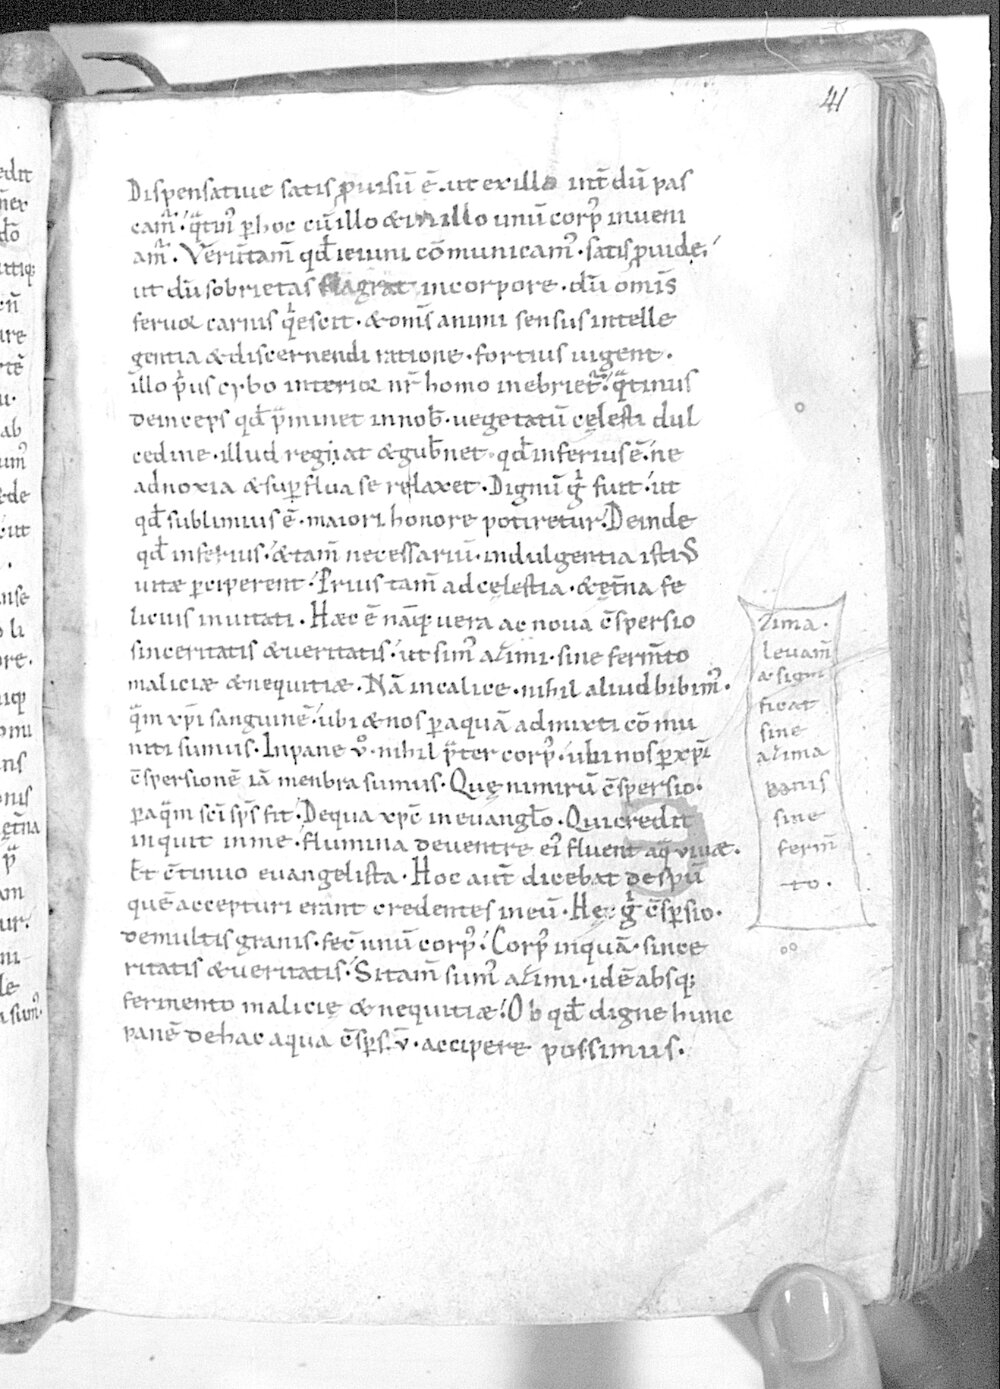 41
Dispensatiue satis ꝓuisū ē. ut ex illo int̄ dū pas
cam̄. q̄tin᷒ ꝑ hoc cū illo & in illo unū corp᷒ inueni
am̄. Verūtam̄ qd̄ ieiuni cōmunicam᷒. satis ꝓuide.
ut dū sobrietas flagrat in corpore. dū om̄is
feruor carnis q̄escit. & om̄s animi sensus intelle
gentia & discernendi ratione. fortius uigent.
illo p̄us cybo interior nr̄ homo inebriet᷒. q̄tinus
deinceps qd̄ p̄minet in nob̄. uegetatū cęlesti dul
cedine. illud regat & gub̄net. qd̄ inferius ē. ne
ad noxia & suꝑflua se relaxet. Dignū g̊ fuit. ut
qd̄ sublimius ē. maiori honore potiretur. Deinde
qd̄ inferius. & tam̄ necessariū. indulgentia istis
uitæ ꝑciperent. Prius tam̄ ad cęlestia. & et̄na fe
licius inuitati. Hæc ē nāq; uera ac noua c̄spersio
sinceritatis & ueritatis. ut sim᷒ azimi. sine ferm̄to
maliciæ & nequitiæ. Nā in calice. nihil aliud bibim᷒.
q̄m xp̄i sanguinē. ubi & nos ꝑ aquā admixti cōmu
niti sumus. In pane ů. nihil p̄ter corp᷒. ubi nos ꝑ xp̄i
c̄spersionē iā menbra sumus. Quę nimirū c̄spersio.
ꝑ aq̄m sc̄i sp̄s fit. De qua xp̄c in euangl̄o. Qui credit
inquit in me. flumina de uentre ei᷒ fluent aq̄ uiuæ.
Et c̄tinuo euangelista. Hoc aut̄ dicebat de sp̄u
quē accepturi erant credentes in eū. Hęc g̊ c̄sꝑsio.
de multis granis. fec̄ unū corp᷒. Corp᷒ inquā. since
ritatis & ueritatis. Si tam̄ sum᷒ azimi. id ē absq;
fermento malicię & nequitiæ. Ob qd̄ digne hunc
panē de hac aqua c̄sꝑsū. accipere possimus.
Zima.
leuam̄
a signi
ficat
sine
azima
panis
sine
ferm̄
to.